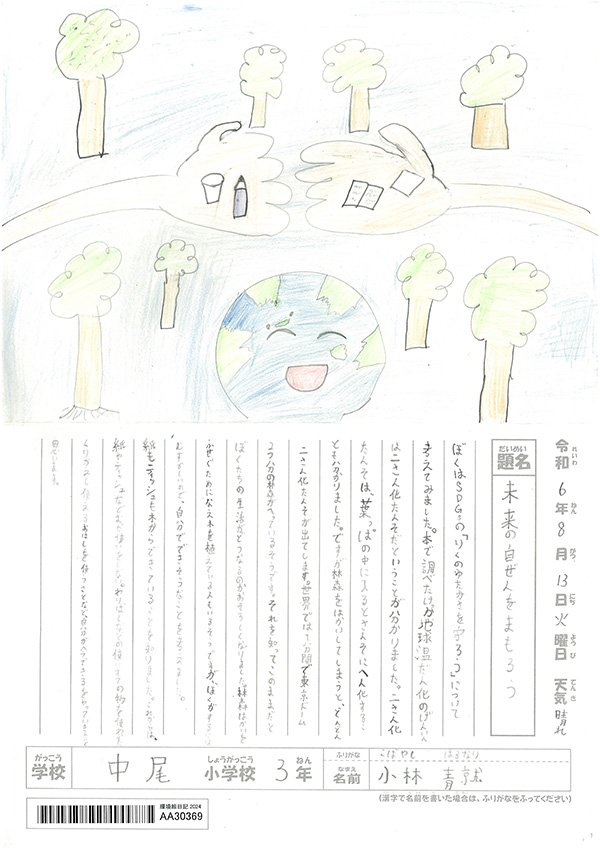 令和6年8月13日火曜日 天気晴れ
れいわ ねん がつ にち ようび てんき
だいめい
題名 未来の自ぜんをまもろう
ぼくはSDGsの「りくのゆたかさを守ろう」について
考えてみました。本で調べたけが地球温だん化のげんいん
は二さん化たんそだということが分かりました。二さん化
たんそは、葉っぱの中に入るとさんそにへん化するこ
とも分かりました。ですが林森をはかいしてしまうと、どんどん
二さん化たんそが出てします。世界では1分間で東京ドーム
2つ分の林森がへっているそうです。それを知ってこのままだと
ぼくたちの生活がどうなるのかおそろしくなりました。森林はかいを
ふせぐためになえ木を植えている人もいるそうですが、ぼくが
むずかしいので、自分でできそうなことを考えました。
紙もティッシュも木からできていることを知りました。これからは、
紙やティッシュをできるだけ
おはしを使うことなど、自分ができることをやっていきたいと
思います。
がっこう しょうがっこう ねん ふりがな こばやし はるなり
学校 中尾 小学校 3年 なまえ 名前 小林 青就
(漢字で名前を書いた場合は、ふりがなをふってください)
環境絵日記 2024
AA30369